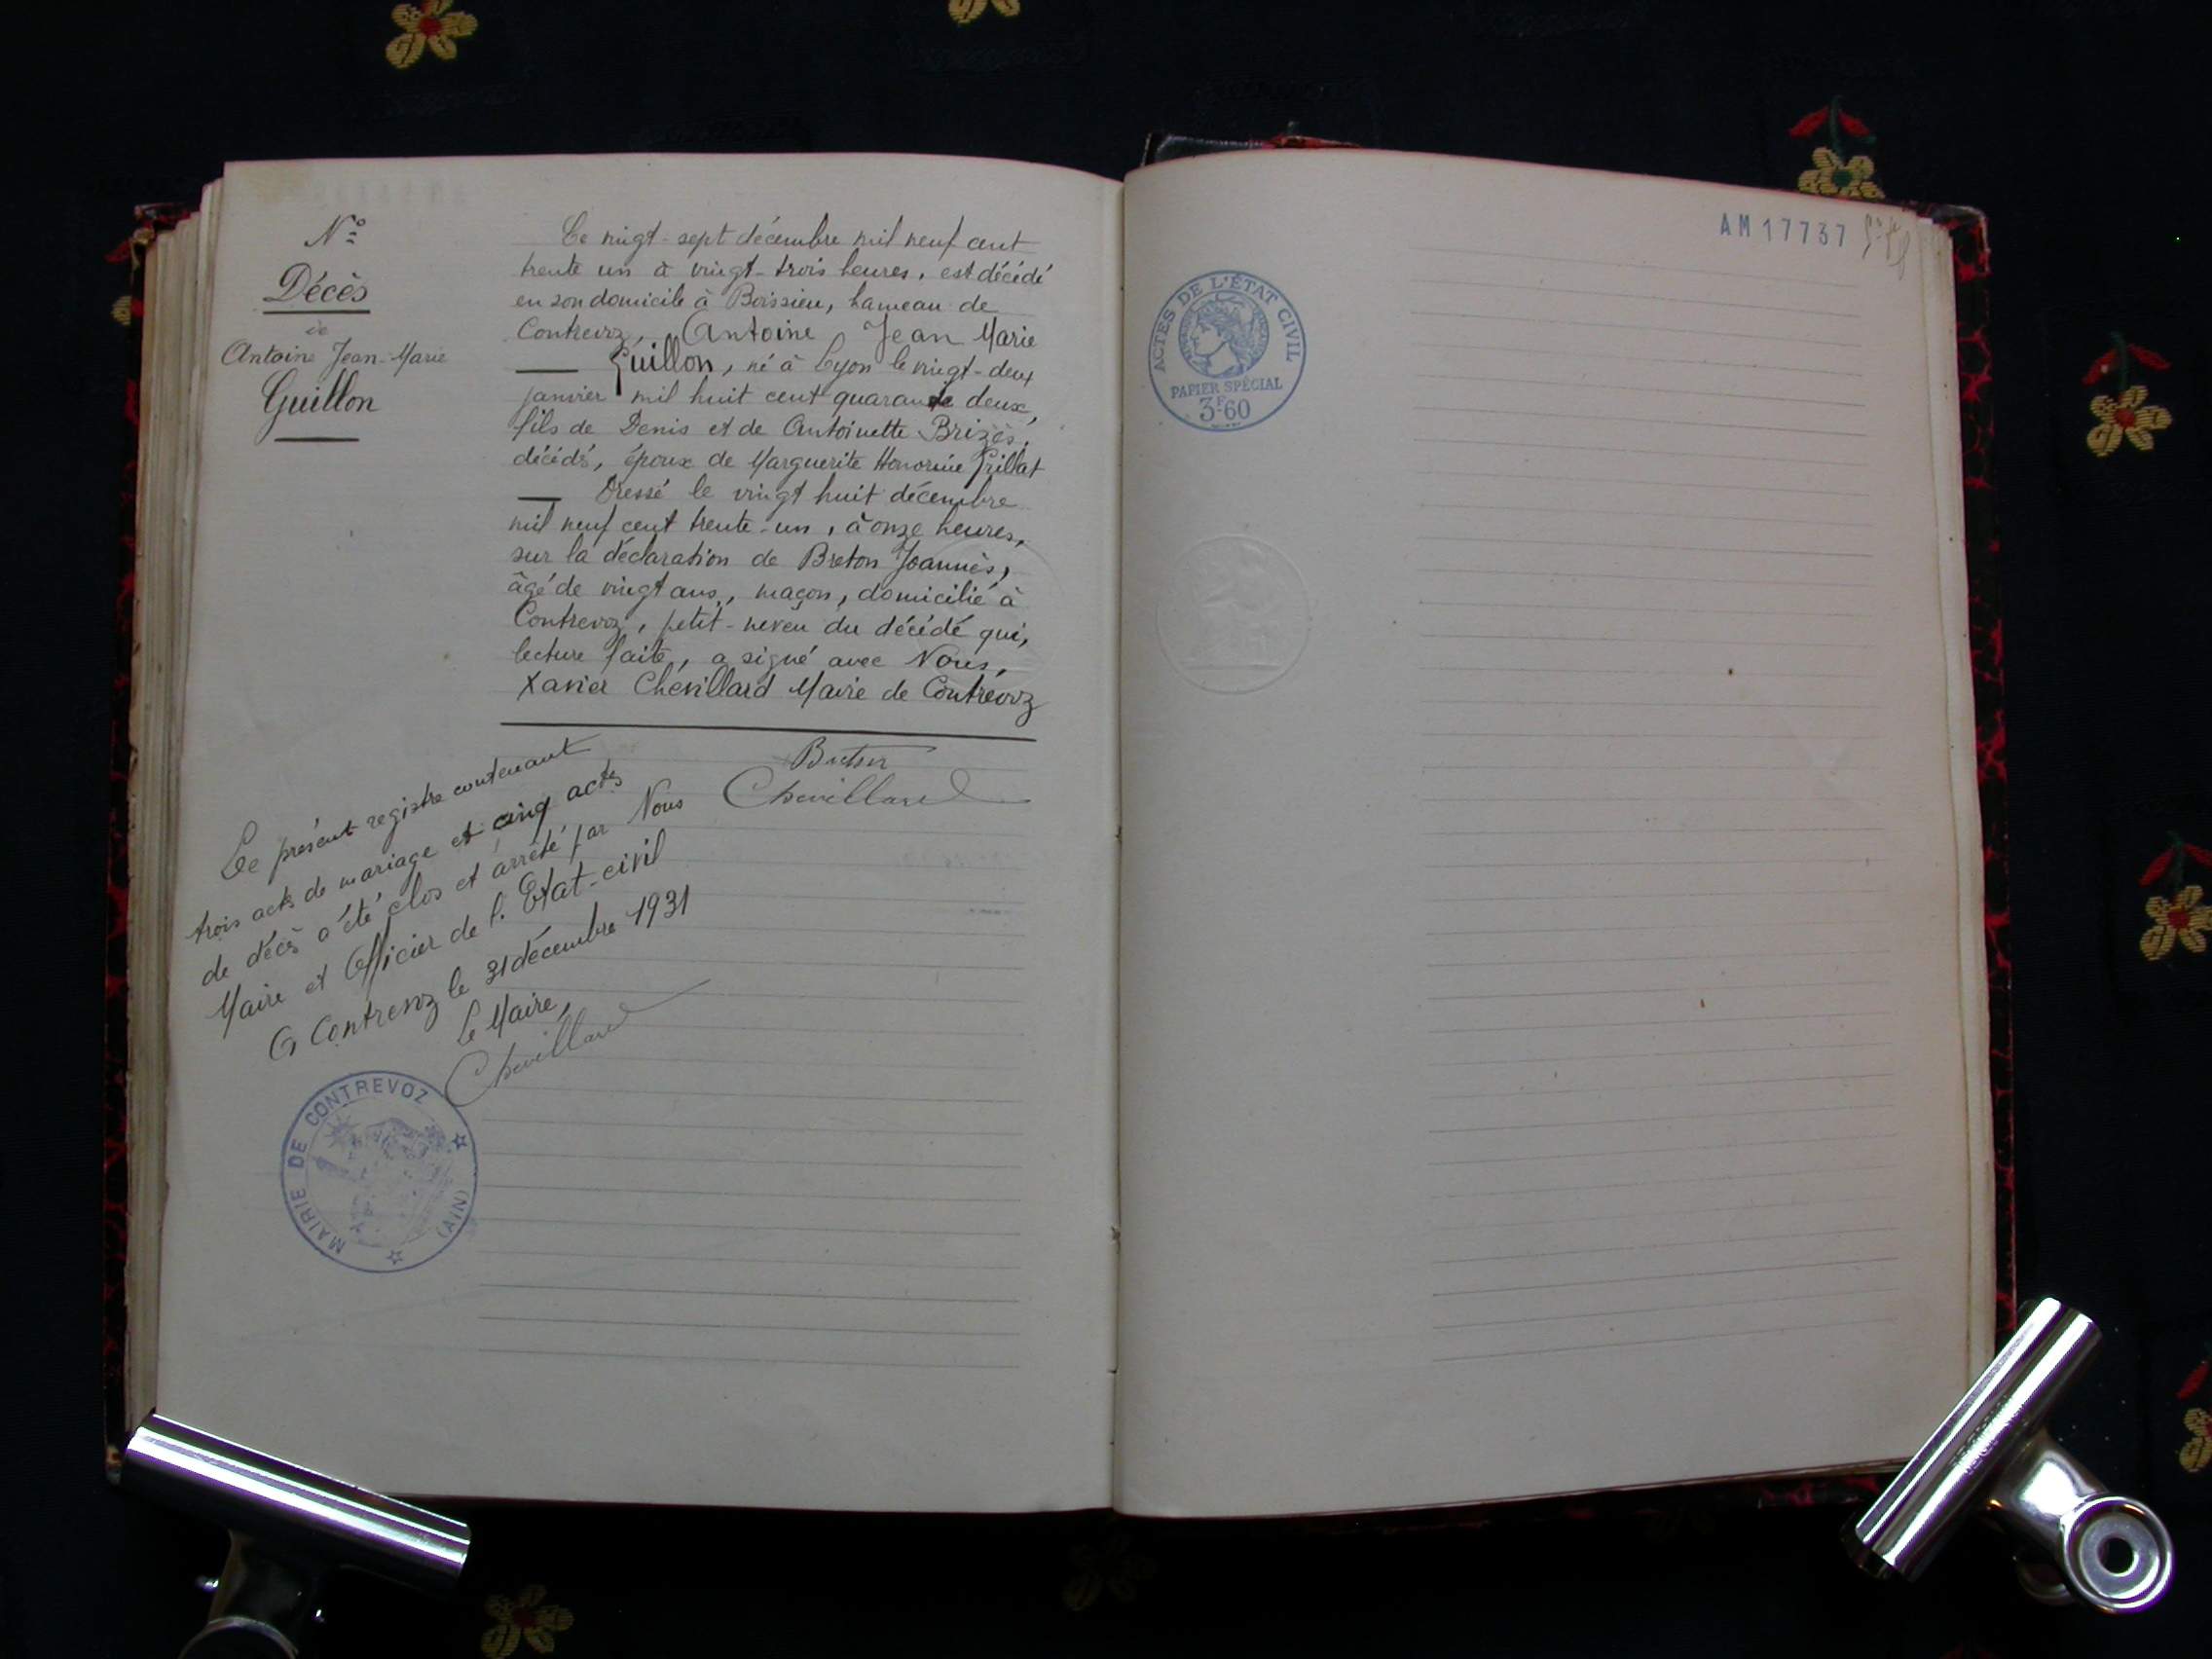 N°
Décès
de
Antoine Jean-Marie
Guillon
Le vingt-sept décembre mil neuf cent
trente un à vingt-trois heures, est décédé
en son domicile à Boissieu, hameau de
Contrevoz, Antoine Jean Marie
Guillon, né à Lyon le vingt-deux
janvier mil huit cent quarante deux,
fils de Denis et de Antoinette Brizès,
décédés, époux de Marguerite Honorine Grillat
Dressé le vingt huit décembre
mil neuf cent trente-un, à onze heures,
sur la déclaration de Breton Joannès,
âgé de vingt ans, maçon, domicilié à
Contrevoz, petit-neveu du décédé qui,
lecture faite, a signé avec Nous,
Xavier Chevillard Maire de Contrevoz
Breton
Chevillard
Le présent registre contenant
trois actes de mariage et cinq actes
de décès a été clos et arrêté par Nous
Maire et Officier de l'Etat-civil
A Contrevoz le 31 décembre 1931
Le Maire,
Chevillard
MAIRIE DE CONTREVOZ
(AIN)
AM 17737
ACTES DE L'ÉTAT CIVIL
PAPIER SPÉCIAL
3F.60